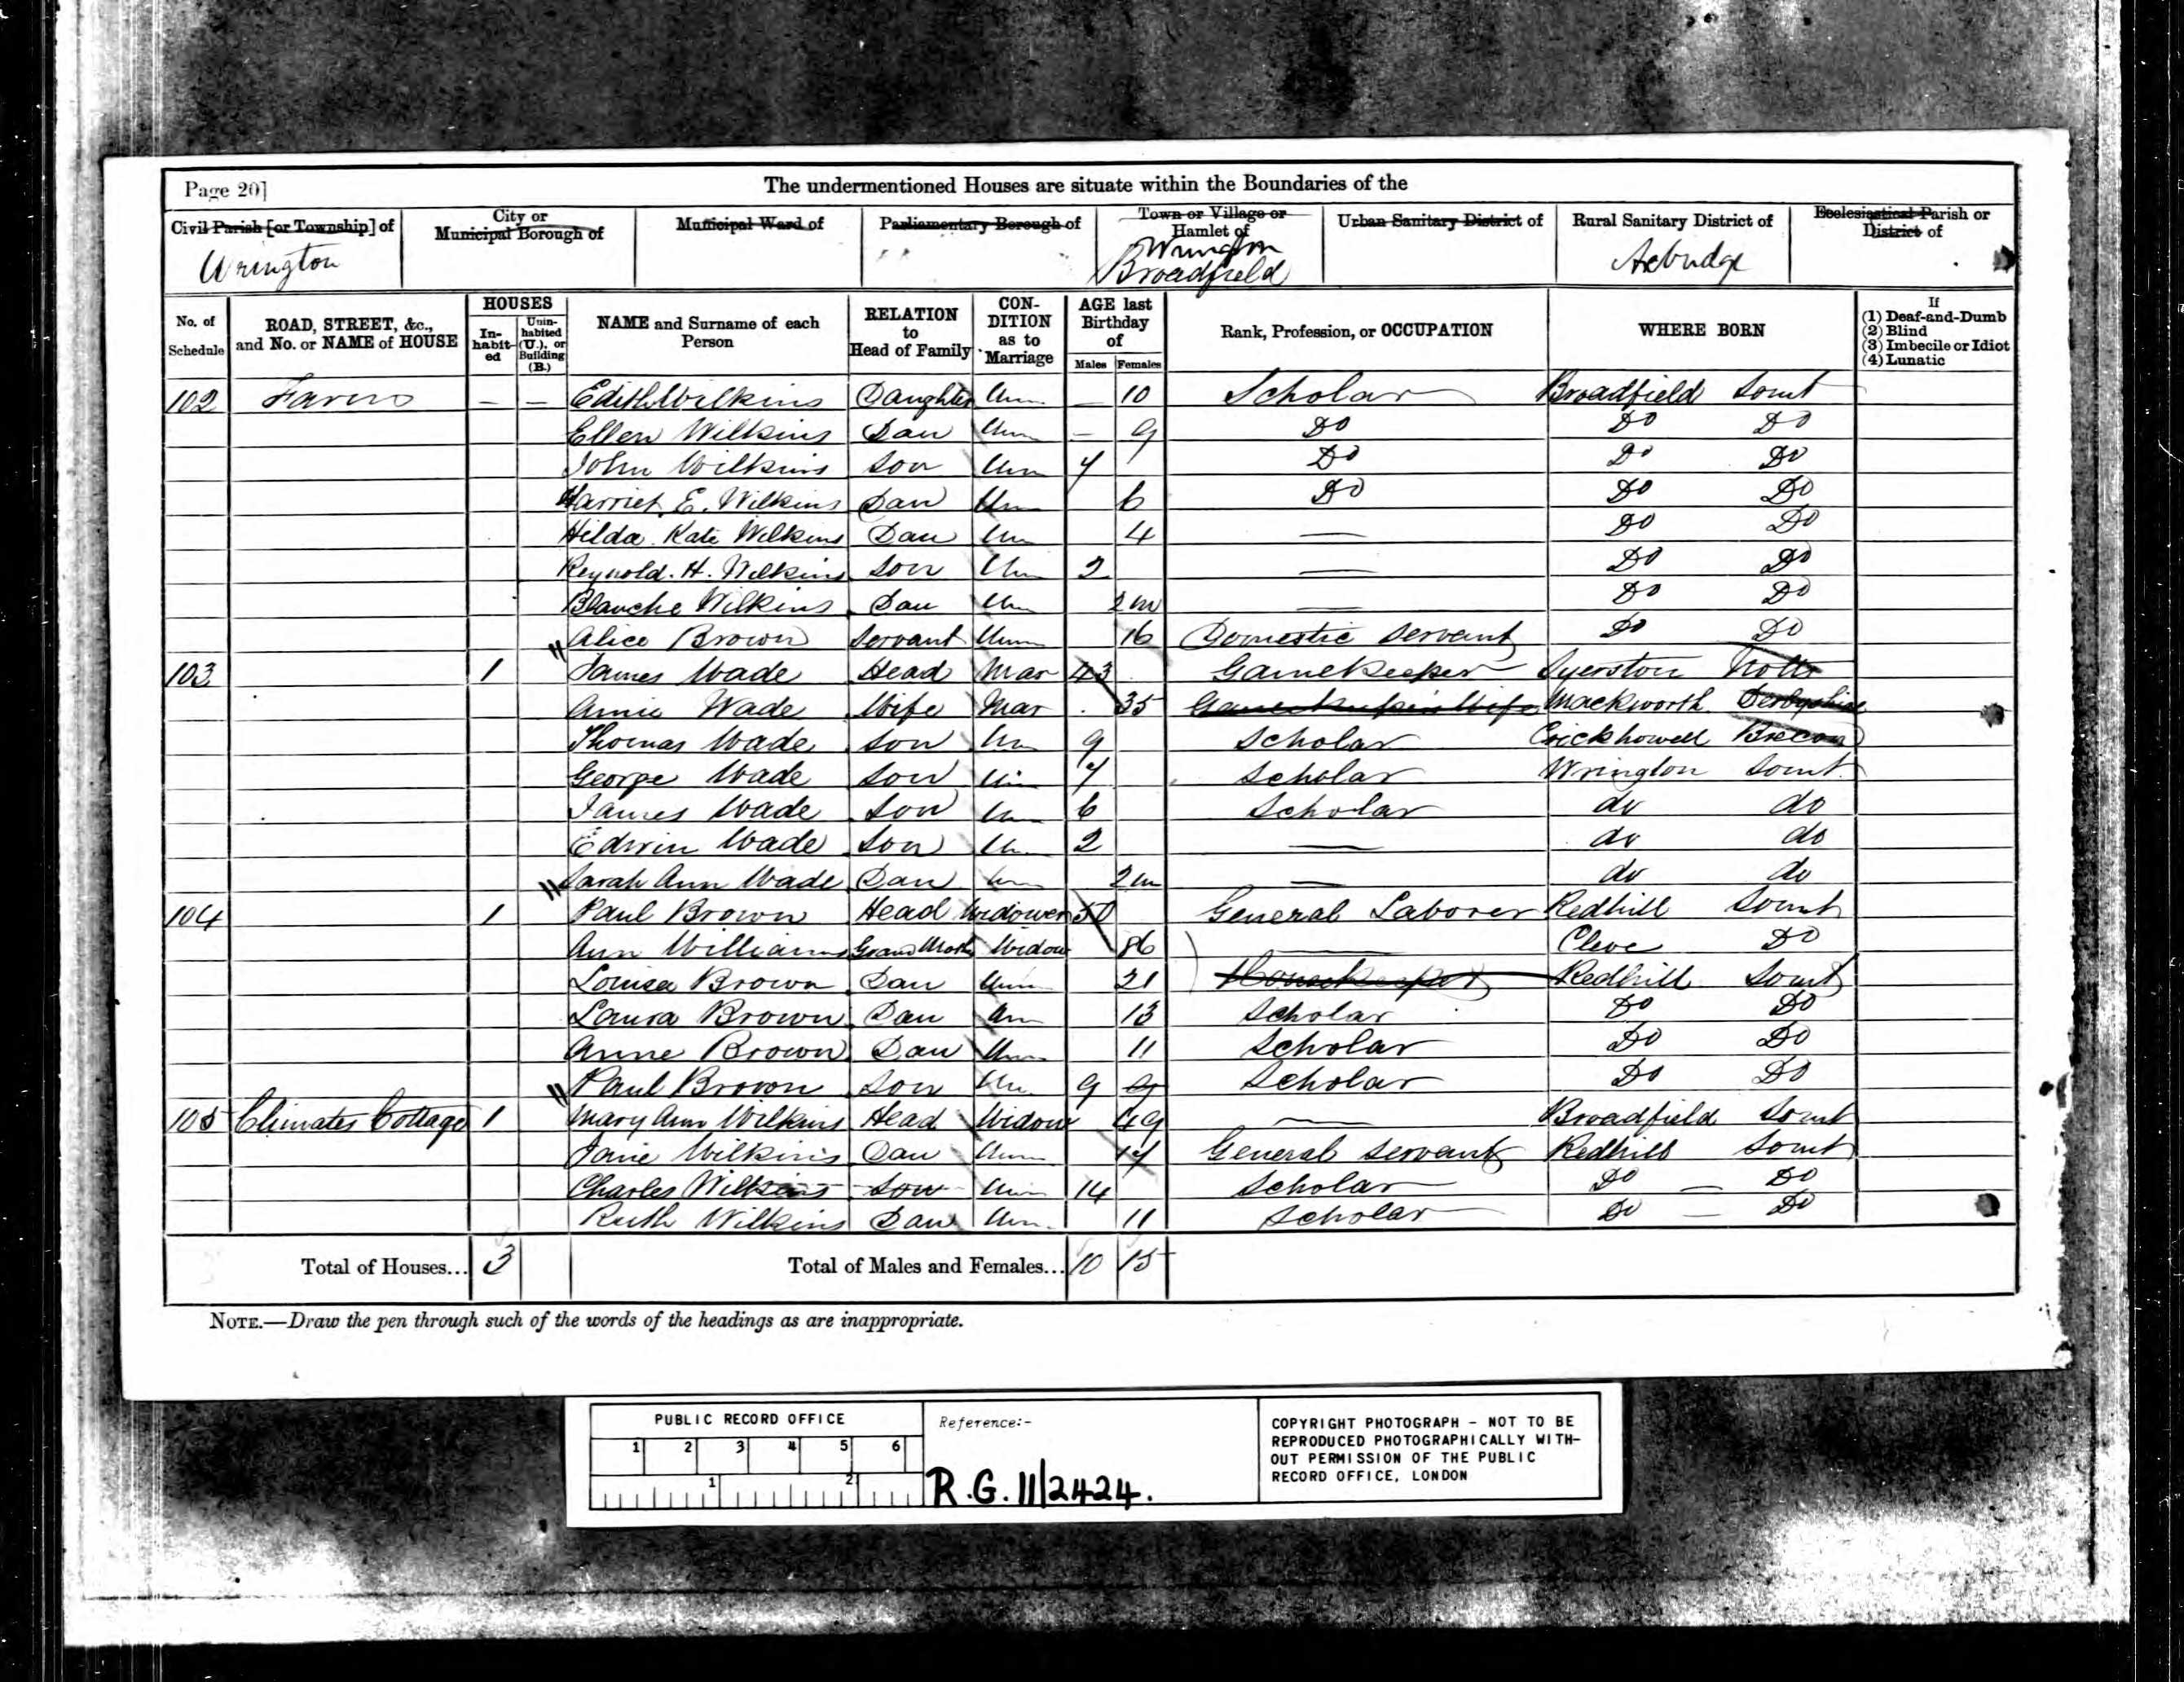 Page 20]
The undermentioned Houses are situate within the Boundaries of the
Civil Parish [or Township] of
City or Municipal Borough of
Municipal Ward of
Parliamentary Borough of
Town or Village or Hamlet of
Urban Sanitary District of
Rural Sanitary District of
Ecclesiastical Parish or District of
Wrington
Wrington Broadfield
Axbridge
No. of Schedule
ROAD, STREET, &c., and No. or NAME of HOUSE
HOUSES
In-habit-ed
Unin-habited (U.), or Building (B.)
NAME and Surname of each Person
RELATION to Head of Family
CON-DITION as to Marriage
AGE last Birthday of
Males
Females
Rank, Profession, or OCCUPATION
WHERE BORN
If
(1) Deaf-and-Dumb
(2) Blind
(3) Imbecile or Idiot
(4) Lunatic
102 Farm — — Edith Wilkins Daughter Un — 10 Scholar Broadfield Somt
Ellen Wilkins Dau Un — 9 Do Do Do
John Wilkins Son Un 7 Do Do Do
Harriet E. Wilkins Dau Un 6 Do Do Do
Hilda Kate Wilkins Dau Un 4 — Do Do
Reynold. H. Wilkins Son Un 2 — Do Do
Blanche Wilkins Dau Un 2m — Do Do
Alice Brown Servant Unm 16 Domestic Servant Do Do
103 1 James Wade Head Mar 43 Gamekeeper Syerston Notts
Annie Wade Wife Mar 35 Gamekeeper's Wife Mackworth Derbyshire
Thomas Wade Son Un 9 Scholar Crickhowell Brecon
George Wade Son Un 7 Scholar Wrington Somt
James Wade Son Un 6 Scholar do do
Edwin Wade Son Un 2 — do do
Sarah Ann Wade Dau Un 2m — do do
104 1 Paul Brown Head Widower 50 General Laborer Redhill Somt
Ann Williams Grand Moth Widow 86 — Cleve Do
Louisa Brown Dau Unm 21 Housekeeper Redhill Somt
Laura Brown Dau Un 13 Scholar Do Do
Anne Brown Dau Un 11 Scholar Do Do
Paul Brown Son Un 9 9 Scholar Do Do
105 Climates Cottage 1 Mary Ann Wilkins Head Widow 49 — Broadfield Somt
Jane Wilkins Dau Unm 17 General Servant Redhill Somt
Charles Wilkins Son Un 14 Scholar Do — Do
Ruth Wilkins Dau Un 11 Scholar Do — Do
Total of Houses... 3
Total of Males and Females... 10 15
NOTE.—Draw the pen through such of the words of the headings as are inappropriate.
PUBLIC RECORD OFFICE
1 2 3 4 5 6
1 2
Reference:-
R.G. 11/2424.
COPYRIGHT PHOTOGRAPH - NOT TO BE
REPRODUCED PHOTOGRAPHICALLY WITH-
OUT PERMISSION OF THE PUBLIC
RECORD OFFICE, LONDON